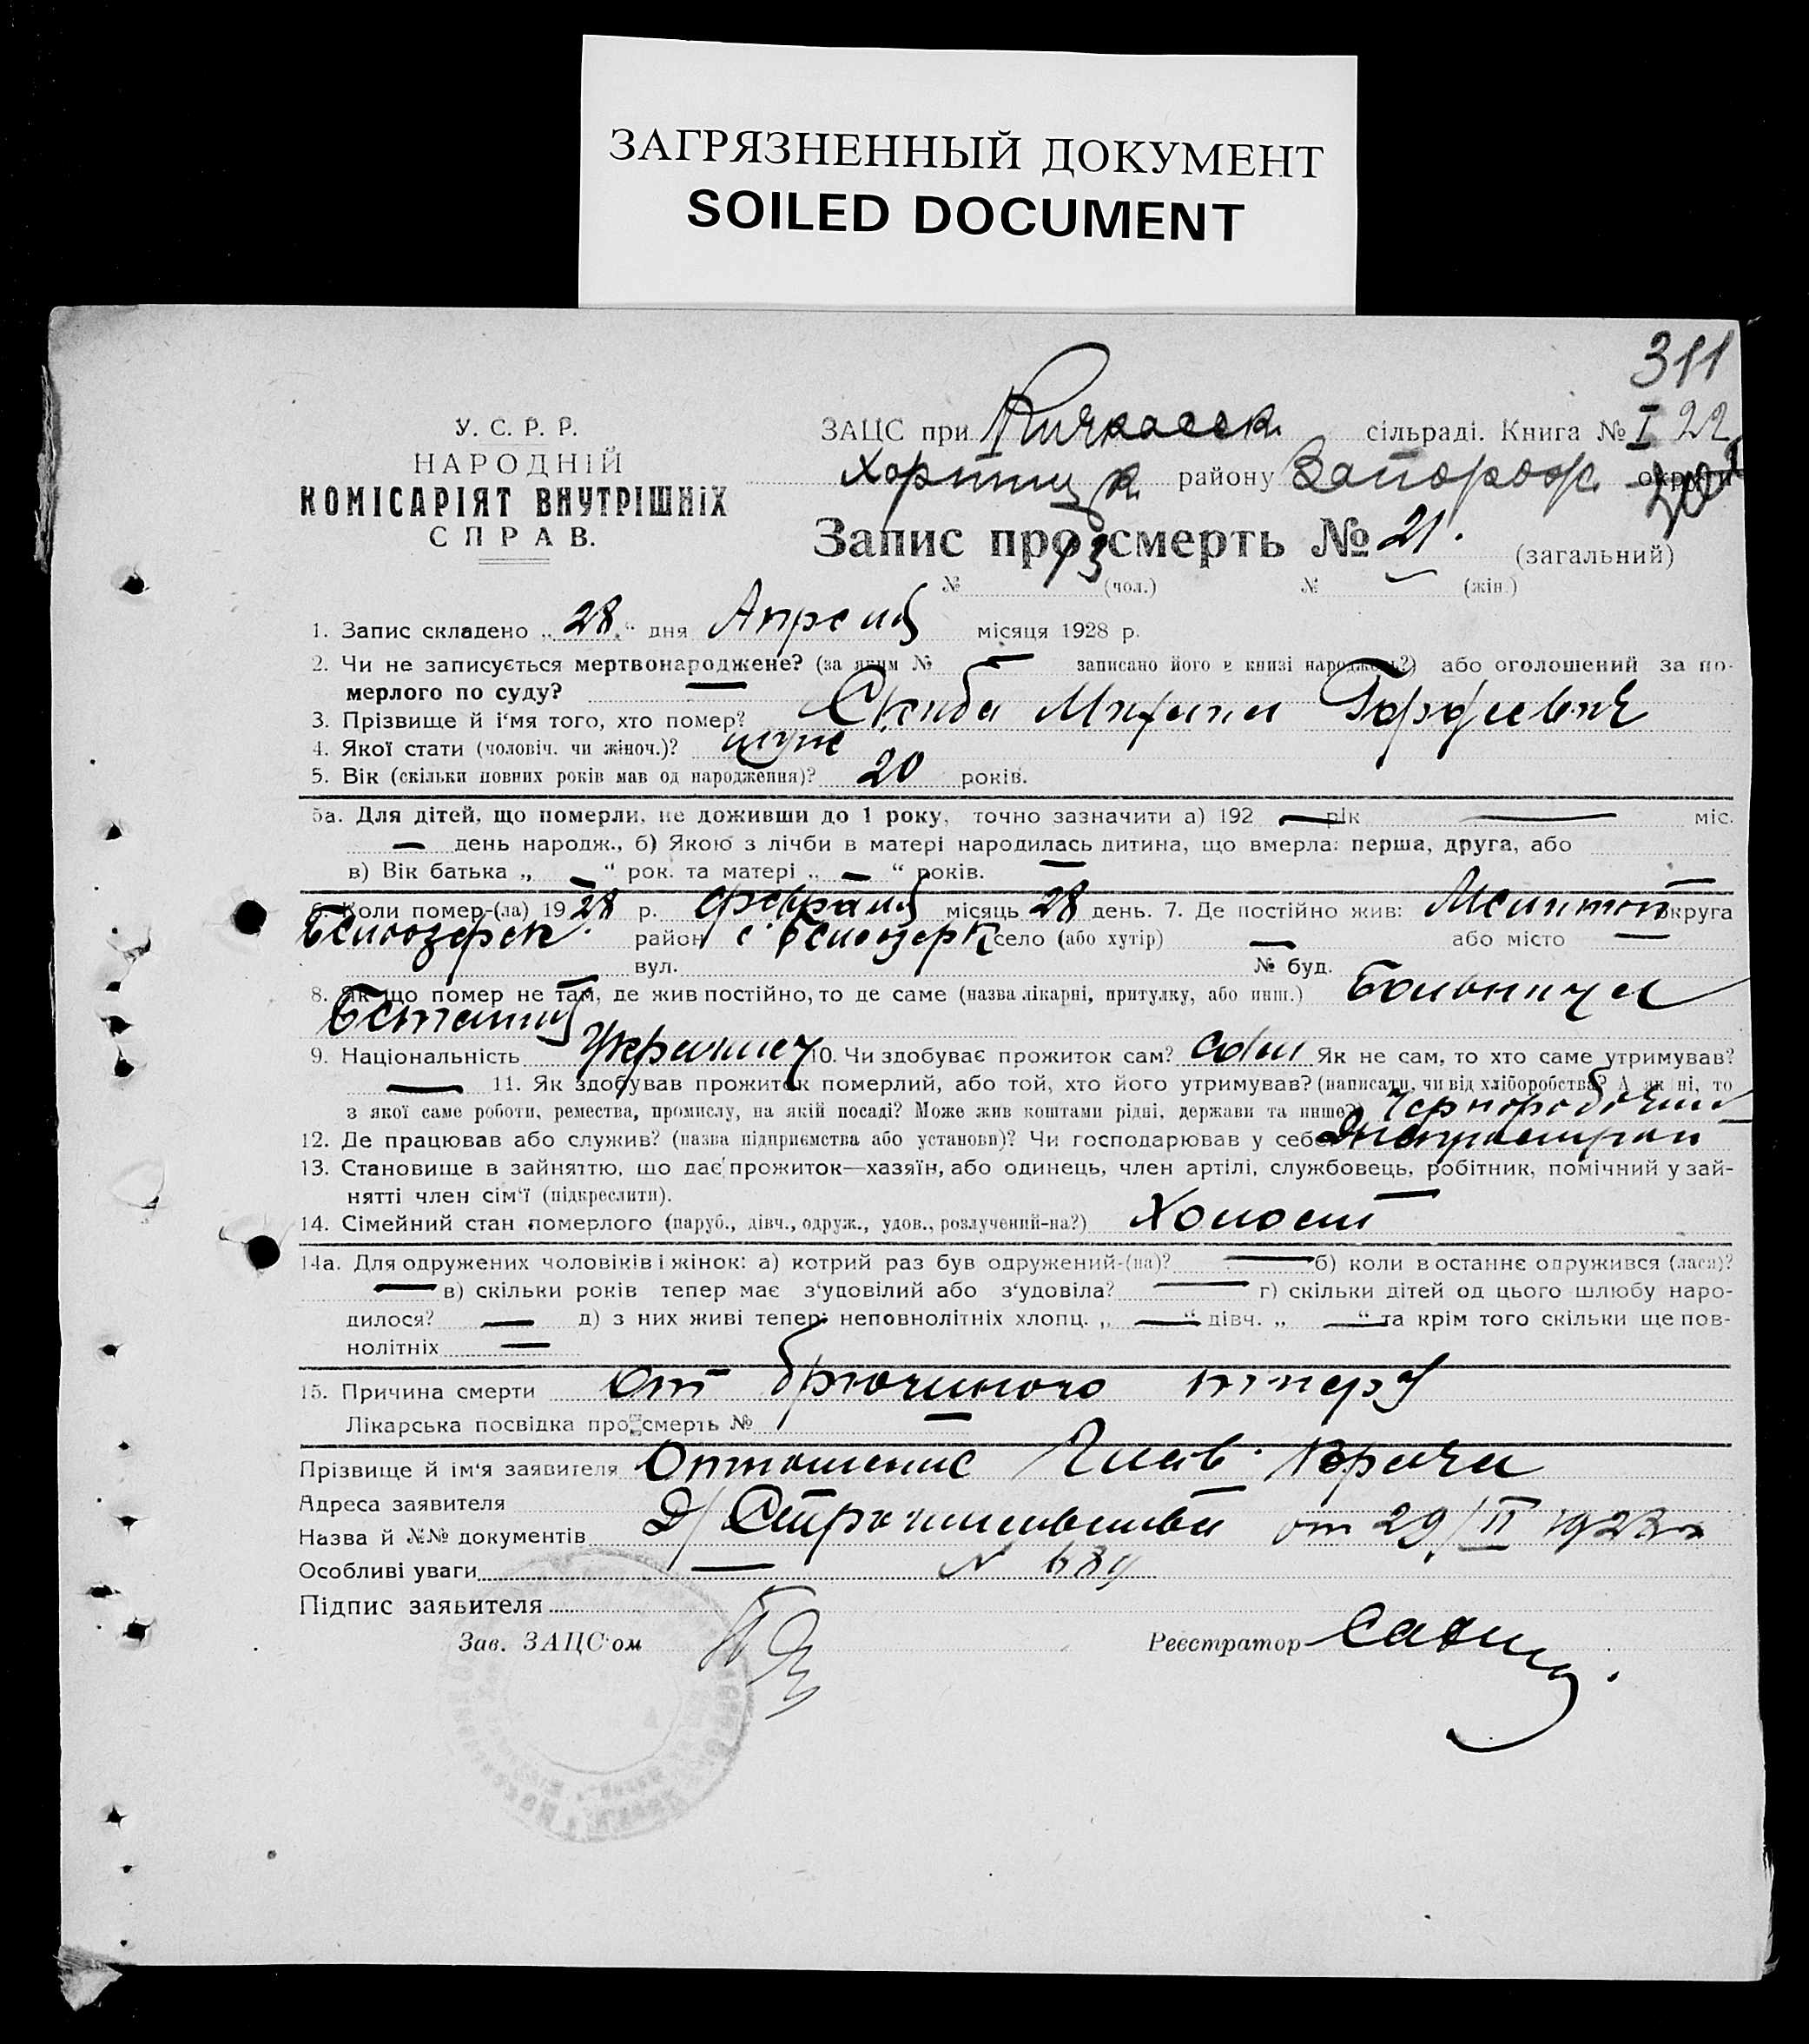 ЗАГРЯЗНЕННЫЙ ДОКУМЕНТ
SOILED DOCUMENT
311
У. С. Р. Р.
НАРОДНІЙ
КОМІСАРІЯТ ВНУТРІШНІХ
СПРАВ.
ЗАЦС при Кичкасск. сільраді. Книга № I 22
Хортиц. р. району Запорож. округи
Запис про смерть № 21. (загальний)
№ 13 (чол.) № (жін.)
1. Запис складено „ 28 “ дня Апреля місяця 1928 р.
2. Чи не записується мертвонароджене? (за яким № — записано його в книзі народжень?) або оголошений за по-
мерлого по суду? —
3. Прізвище й і'мя того, хто помер? Скиба Михаил
4. Якої стати (чоловіч. чи жіноч.)? муж
5. Вік (скільки повних років мав од народження)? 20 років.
5а. Для дітей, що померли, не доживши до 1 року, точно зазначити а) 192 — рік — міс.
— день народж., б) Якою з лічби в матері народилась дитина, що вмерла: перша, друга, або —
в) Вік батька „ — “ рок. та матері „ — “ років.
6. Коли помер-(ла) 19 28 р. февраля місяць 28 день. 7. Де постійно жив: Мелитоп округа
Белозерск. район с. Белозерк село (або хутір) — або місто —
вул. № буд.
8. Як що помер не там, де жив постійно, то де саме (назва лікарні, притулку, або инш.) Больница
9. Національність Украинец 10. Чи здобуває прожиток сам? сам Як не сам, то хто саме утримував?
— 11. Як здобував прожиток померлий, або той, хто його утримував? (написати, чи від хліборобства? А як ні, то
з якої саме роботи, ремества, промислу, на якій посаді? Може жив коштами рідні, держави та инше?) Чернорабочий
12. Де працював або служив? (назва підприємства або установи)? Чи господарював у себе? Днепрострой
13. Становище в зайняттю, що дає прожиток—хазяїн, або одинець, член артілі, службовець, робітник, помічний у зай-
нятті член сім'ї (підкреслити). —
14. Сімейний стан померлого (паруб., дівч., одруж., удов., розлучений-на?) Холост
14а. Для одружених чоловіків і жінок: а) котрий раз був одружений-(на)? — б) коли в останнє одружився (лася)?
— в) скільки років тепер має з'удовілий або з'удовіла? — г) скільки дітей од цього шлюбу наро-
дилося? — д) з них живі тепер: неповнолітніх хлопц. „ — “ дівч. „ — “ та крім того скільки ще пов-
нолітніх —
15. Причина смерти От брюшного тифа
Лікарська посвідка про смерть № —
Прізвище й ім'я заявителя Отношение Глав. Врача
Адреса заявителя
Назва й №№ документів Д/ от 29/II 1928 г
Особливі уваги — № 689
Підпис заявителя
Зав. ЗАЦС'ом Реєстратор